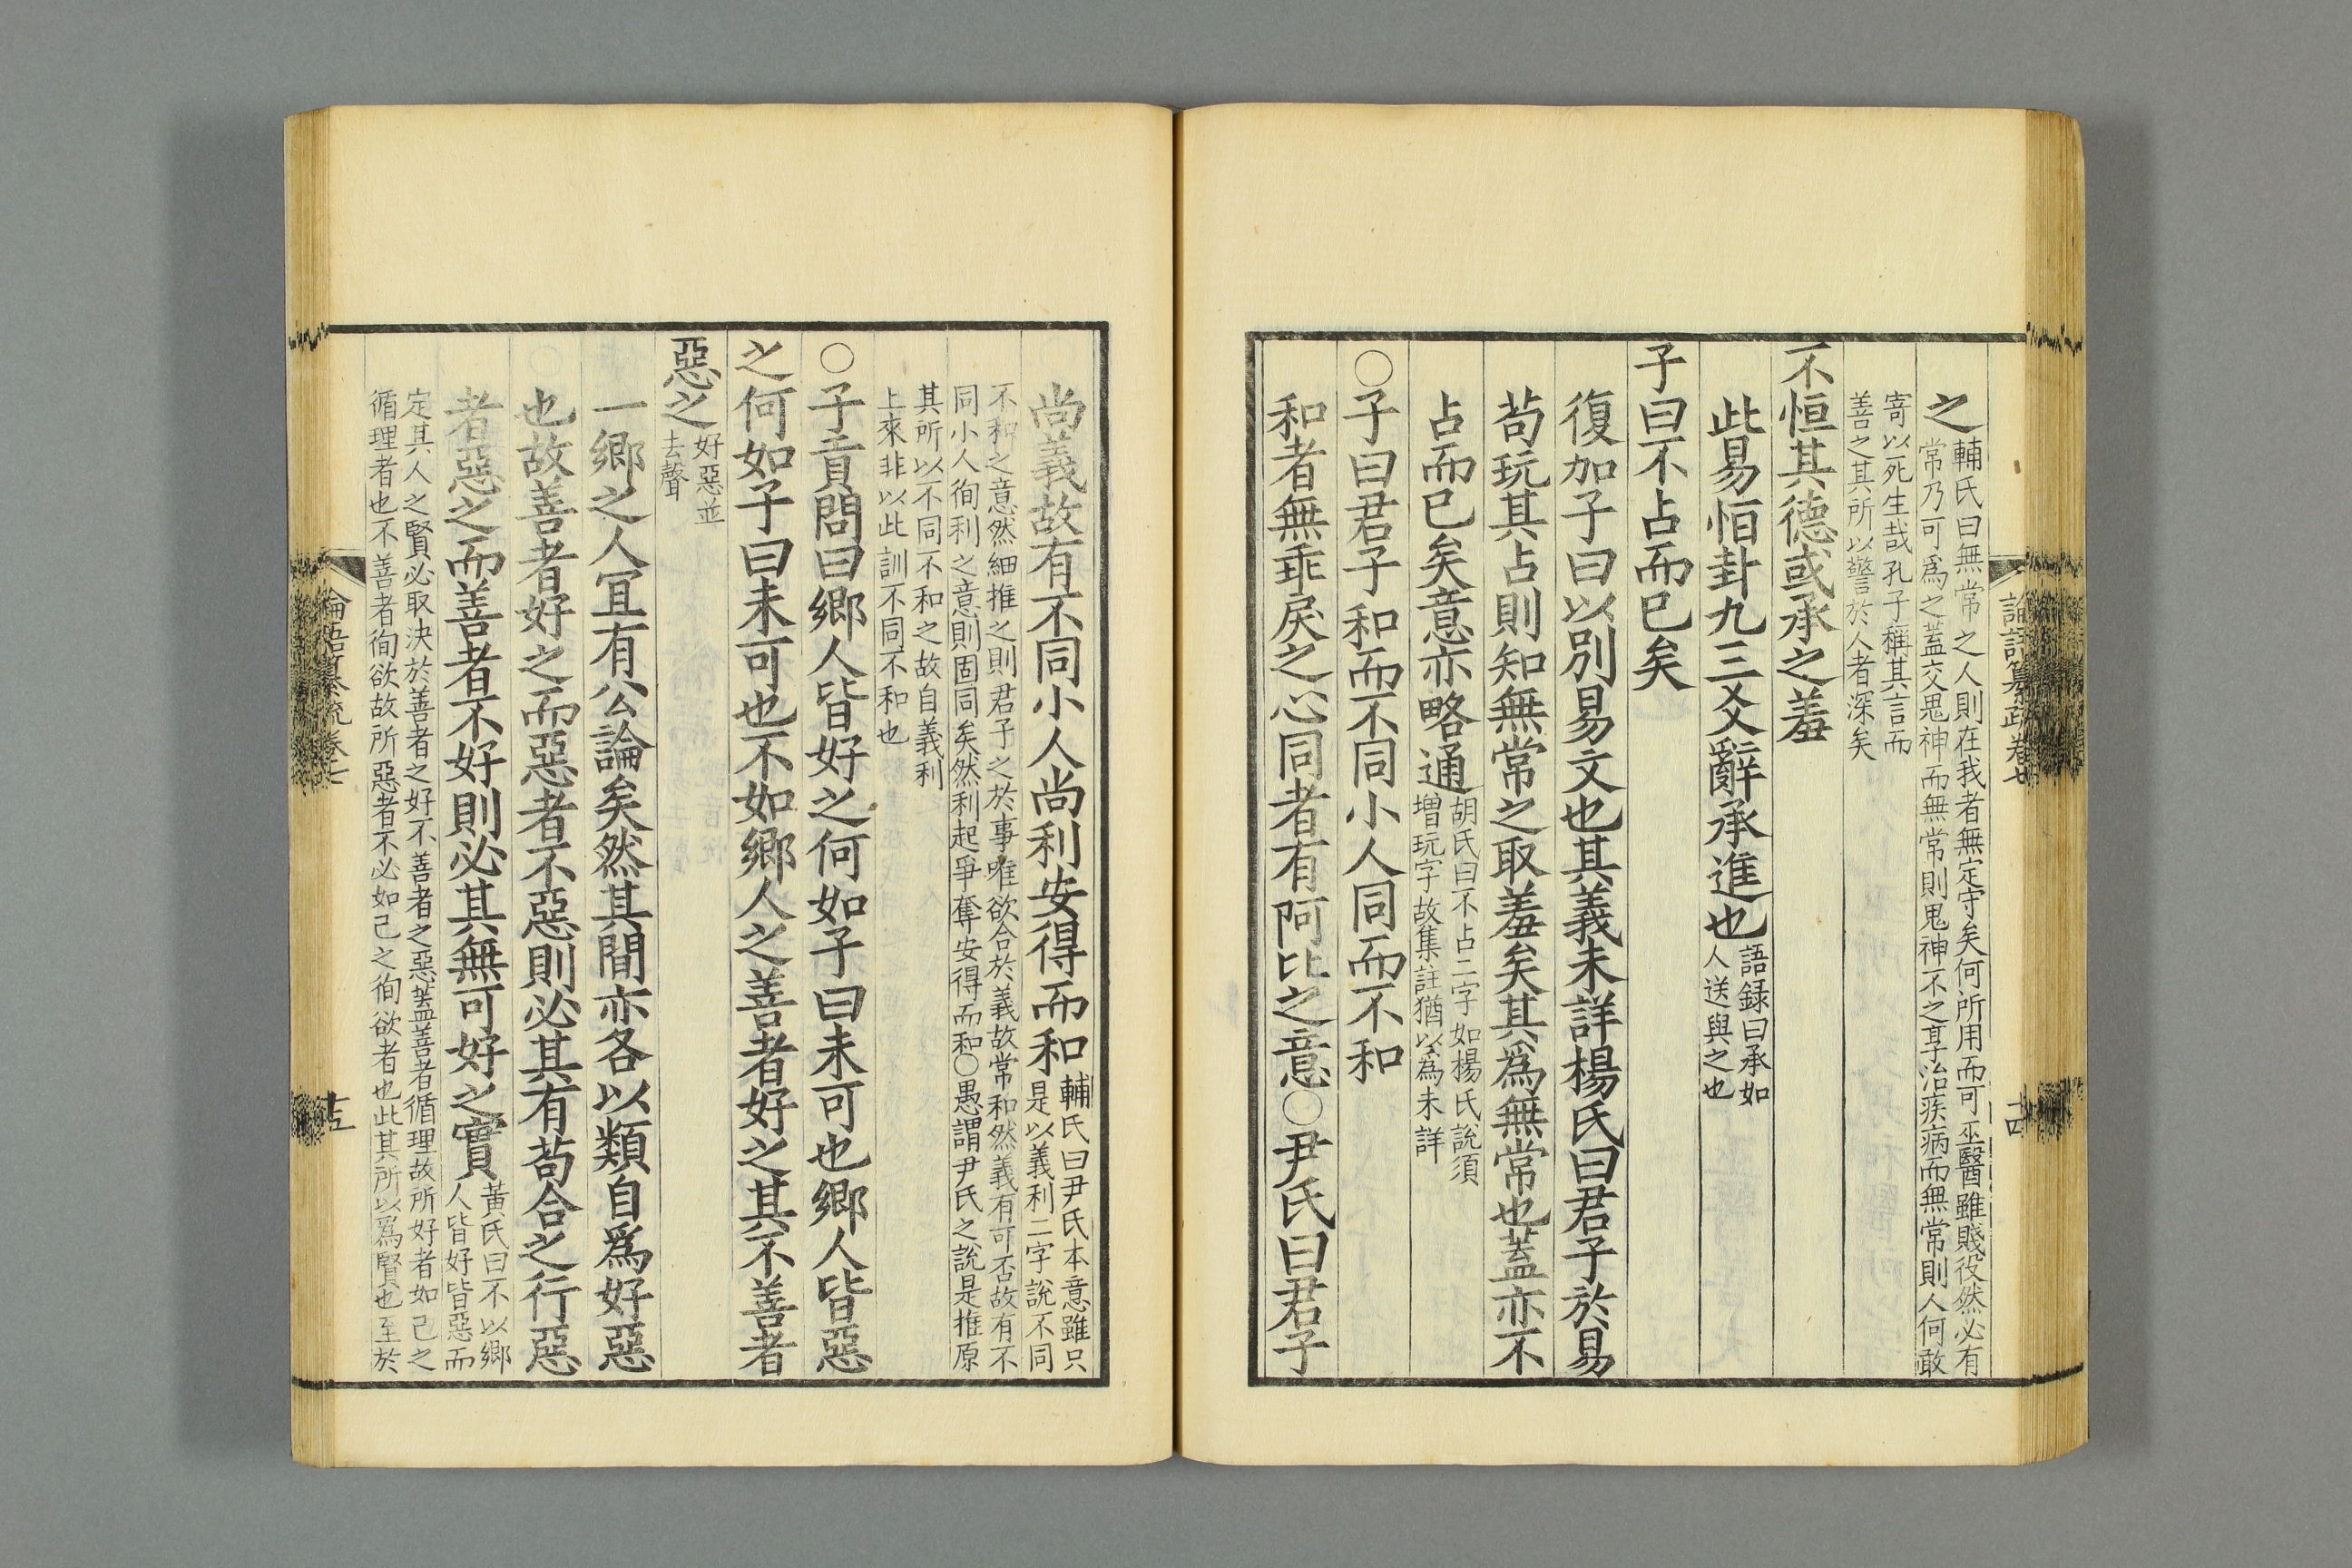 之輔氏曰無常之人則在我者無定守矣何所用而可巫醫雖賤役然必有
常乃可爲之蓋交鬼神而無常則鬼神不之享治疾病而無常則人何敢
寄以死生哉孔子稱其言而
善之其所以警於人者深矣
不恒其德或承之羞
此易恒卦九三爻辭承進也語録曰承如
人送與之也
子曰不占而已矣
復加子曰以別易文也其義未詳楊氏曰君子於易
苟玩其占則知無常之取羞矣其爲無常也蓋亦不
占而已矣意亦略通胡氏曰不占二字如楊氏說須
增玩字故集註猶以為未詳
○子曰君子和而不同小人同而不和
和者無乖戾之心同者有阿比之意○尹氏曰君子
論語纂疏卷七
十四
尚義故有不同小人尚利安得而和輔氏曰尹氏本意雖只
是以義利二字說不同
不和之意然細推之則君子之於事唯欲合於義故常和然義有可否故有不
同小人徇利之意則固同矣然利起爭奪安得而和○愚謂尹氏之說是推原
其所以不同不和之故自義利
上來非以此訓不同不和也
○子貢問曰鄉人皆好之何如子曰未可也鄉人皆惡
之何如子曰未可也不如鄉人之善者好之其不善者
惡之好惡並
去聲
一鄉之人宜有公論矣然其間亦各以類自爲好惡
也故善者好之而惡者不惡則必其有苟合之行惡
者惡之而善者不好則必其無可好之實黃氏曰不以鄉
人皆好皆惡而
定其人之賢必取決於善者之好不善者之惡蓋善者循理故所好者如己之
循理者也不善者徇欲故所惡者不必如己之徇欲者也此其所以爲賢也至於
論語纂疏卷七
十五